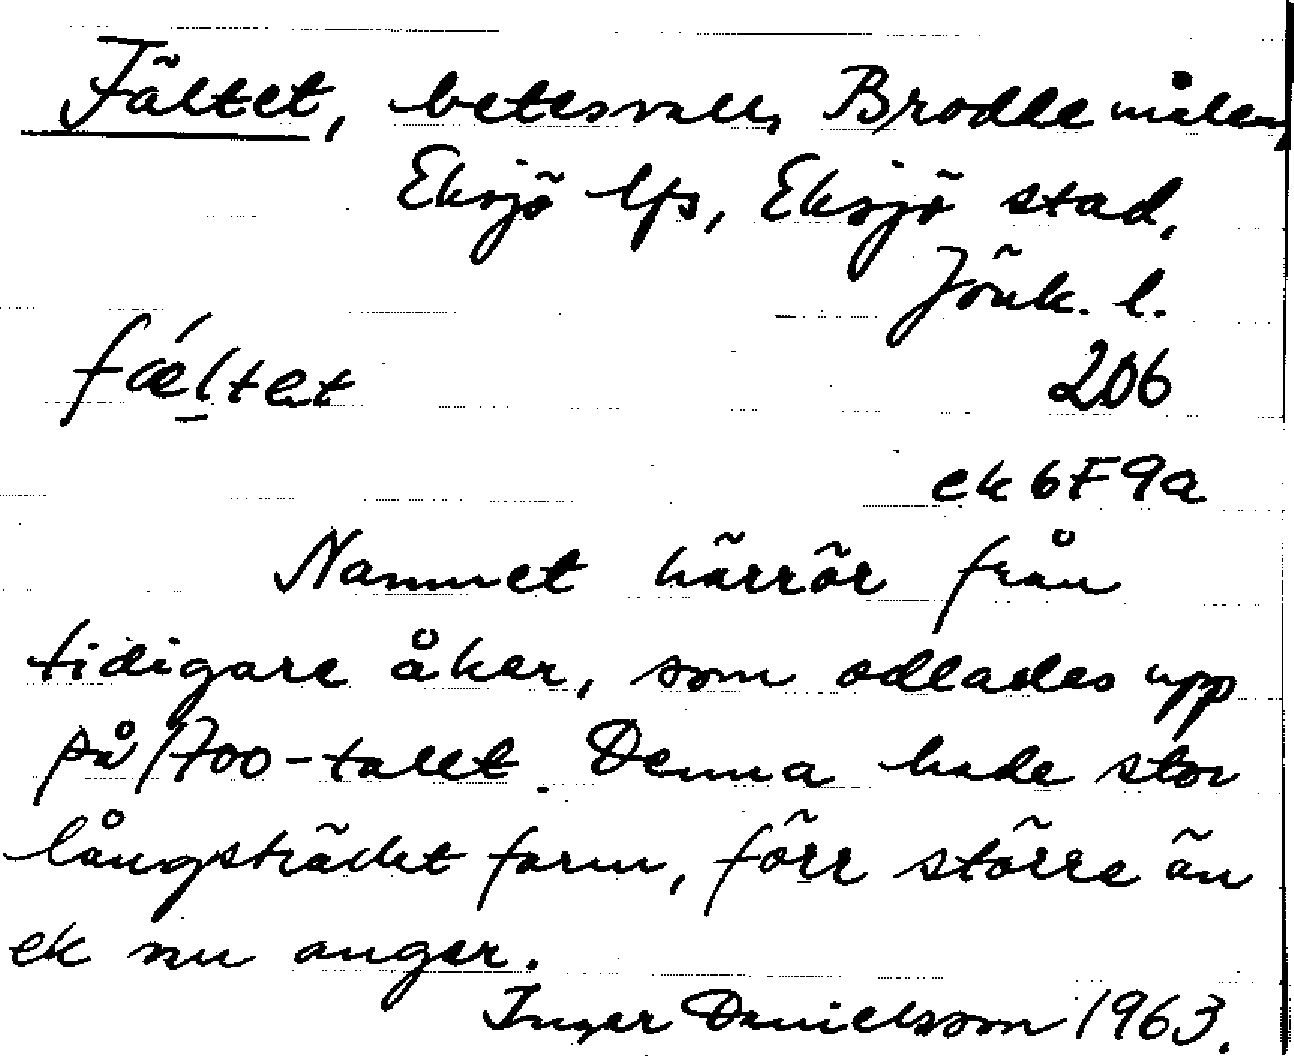 Fältet, betesvall, Broddemålen,
Eksjö lfs, Eksjö stad,
Jönk. l.
fæ´ltet 206
ek 6F9a
Namnet härrör från
tidigare åker, som odlades upp
på 1700-talet. Denna hade stor
långsträckt form, förr större än
ek nu anger.
Inger Danielsson 1963.